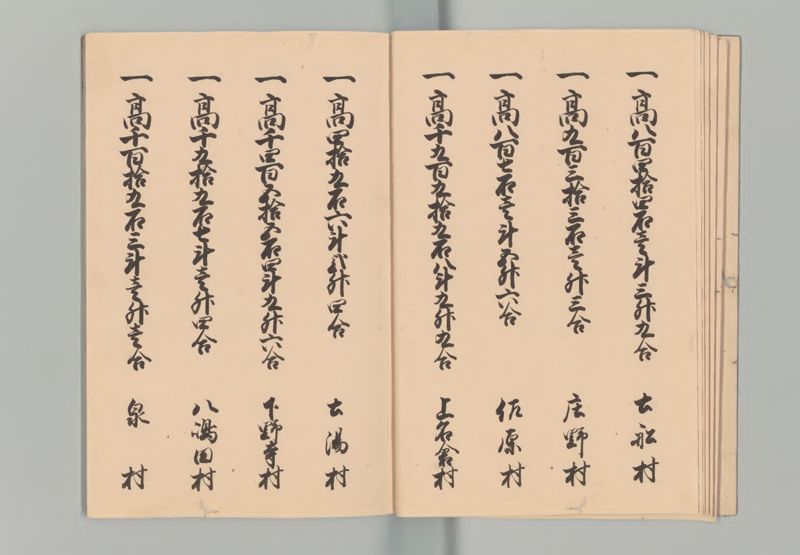 一高八百四拾四石壱斗三升九合 土船村
一高九百三拾三石壱升三合 庄野村
一高八百七石壱斗五升六合 佐原村
一高千九百九拾九石八斗九升九合 上名倉村
一高四拾九石六斗弐升四合 土湯村
一高千四百五拾五石四斗九升六合 下野寺村
一高千九拾九石七斗壱升四合 八嶋田村
一高千百拾九石三斗壱升壱合 泉村